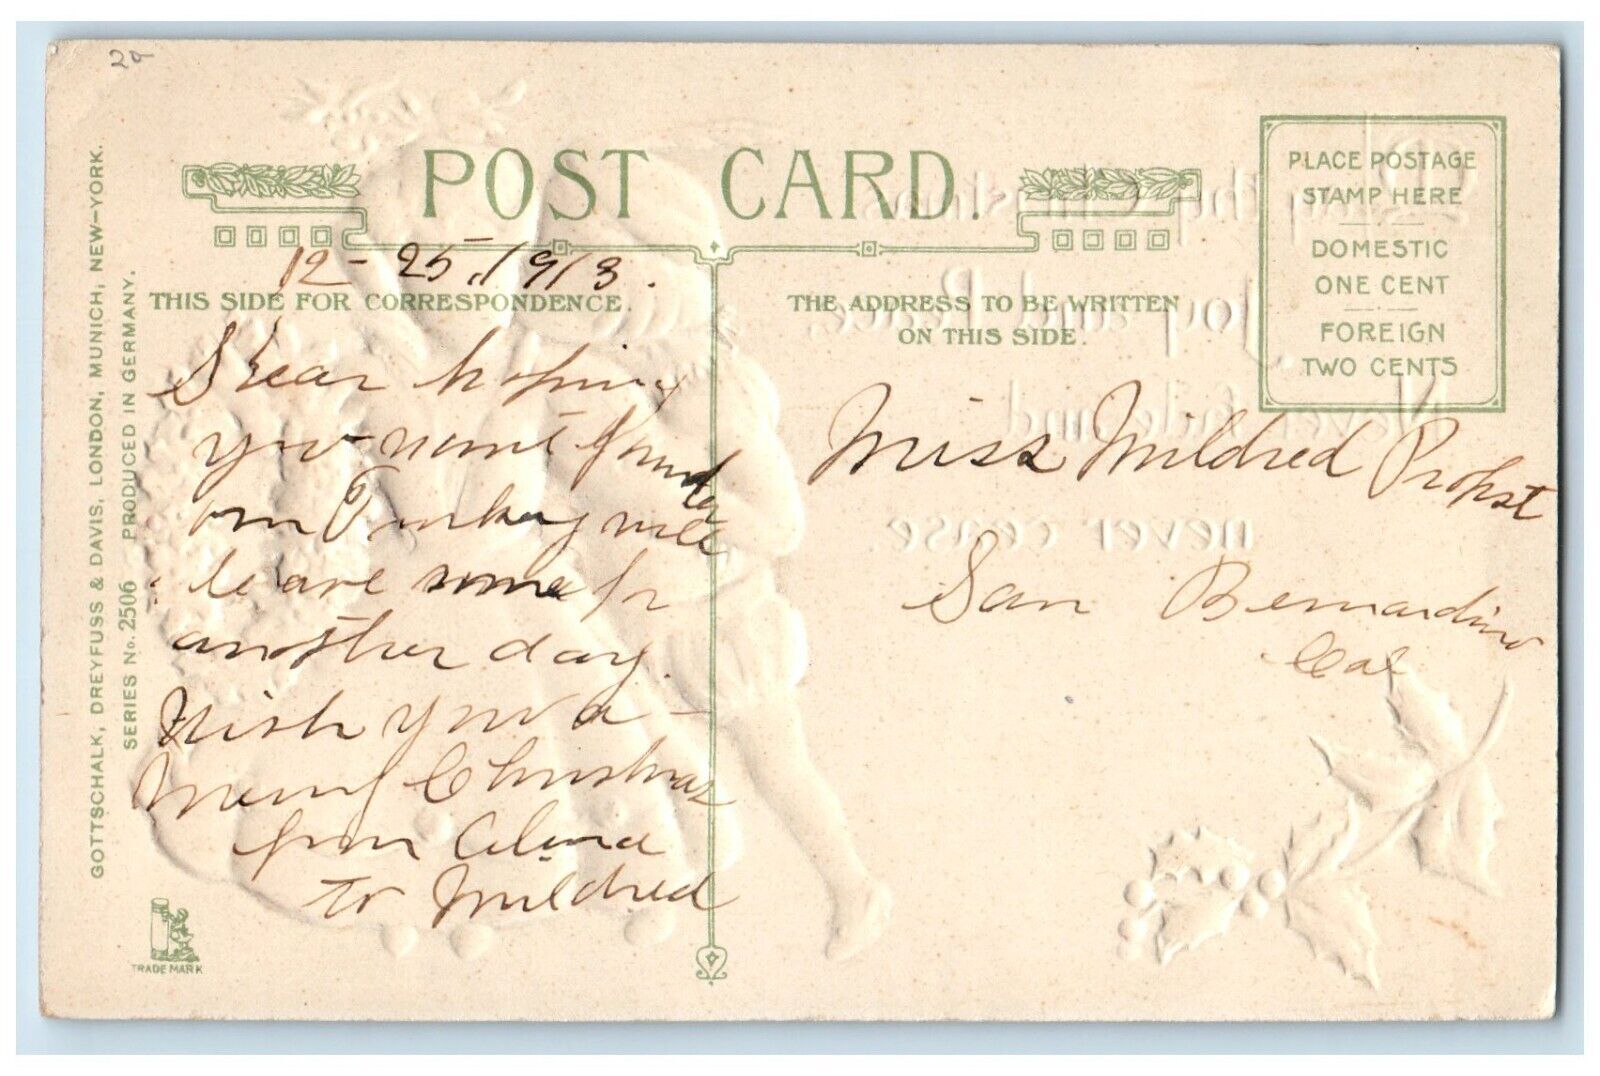 20
POST CARD.
PLACE POSTAGE
STAMP HERE
DOMESTIC
ONE CENT
FOREIGN
TWO CENTS
12-25./1913.
THIS SIDE FOR CORRESPONDENCE.
Dear hoping
you wont
our Turkey will
leave some for
another day.
Wish you a -
Merry Christmas
from Alma
to Mildred
THE ADDRESS TO BE WRITTEN
ON THIS SIDE.
Miss Mildred Probst
San Bernardino
Cal
GOTTSCHALK, DREYFUSS & DAVIS, LONDON, MUNICH, NEW-YORK.
SERIES No. 2506 PRODUCED IN GERMANY.
TRADE MARK
Christmas
Joy and Peace,
never cease.